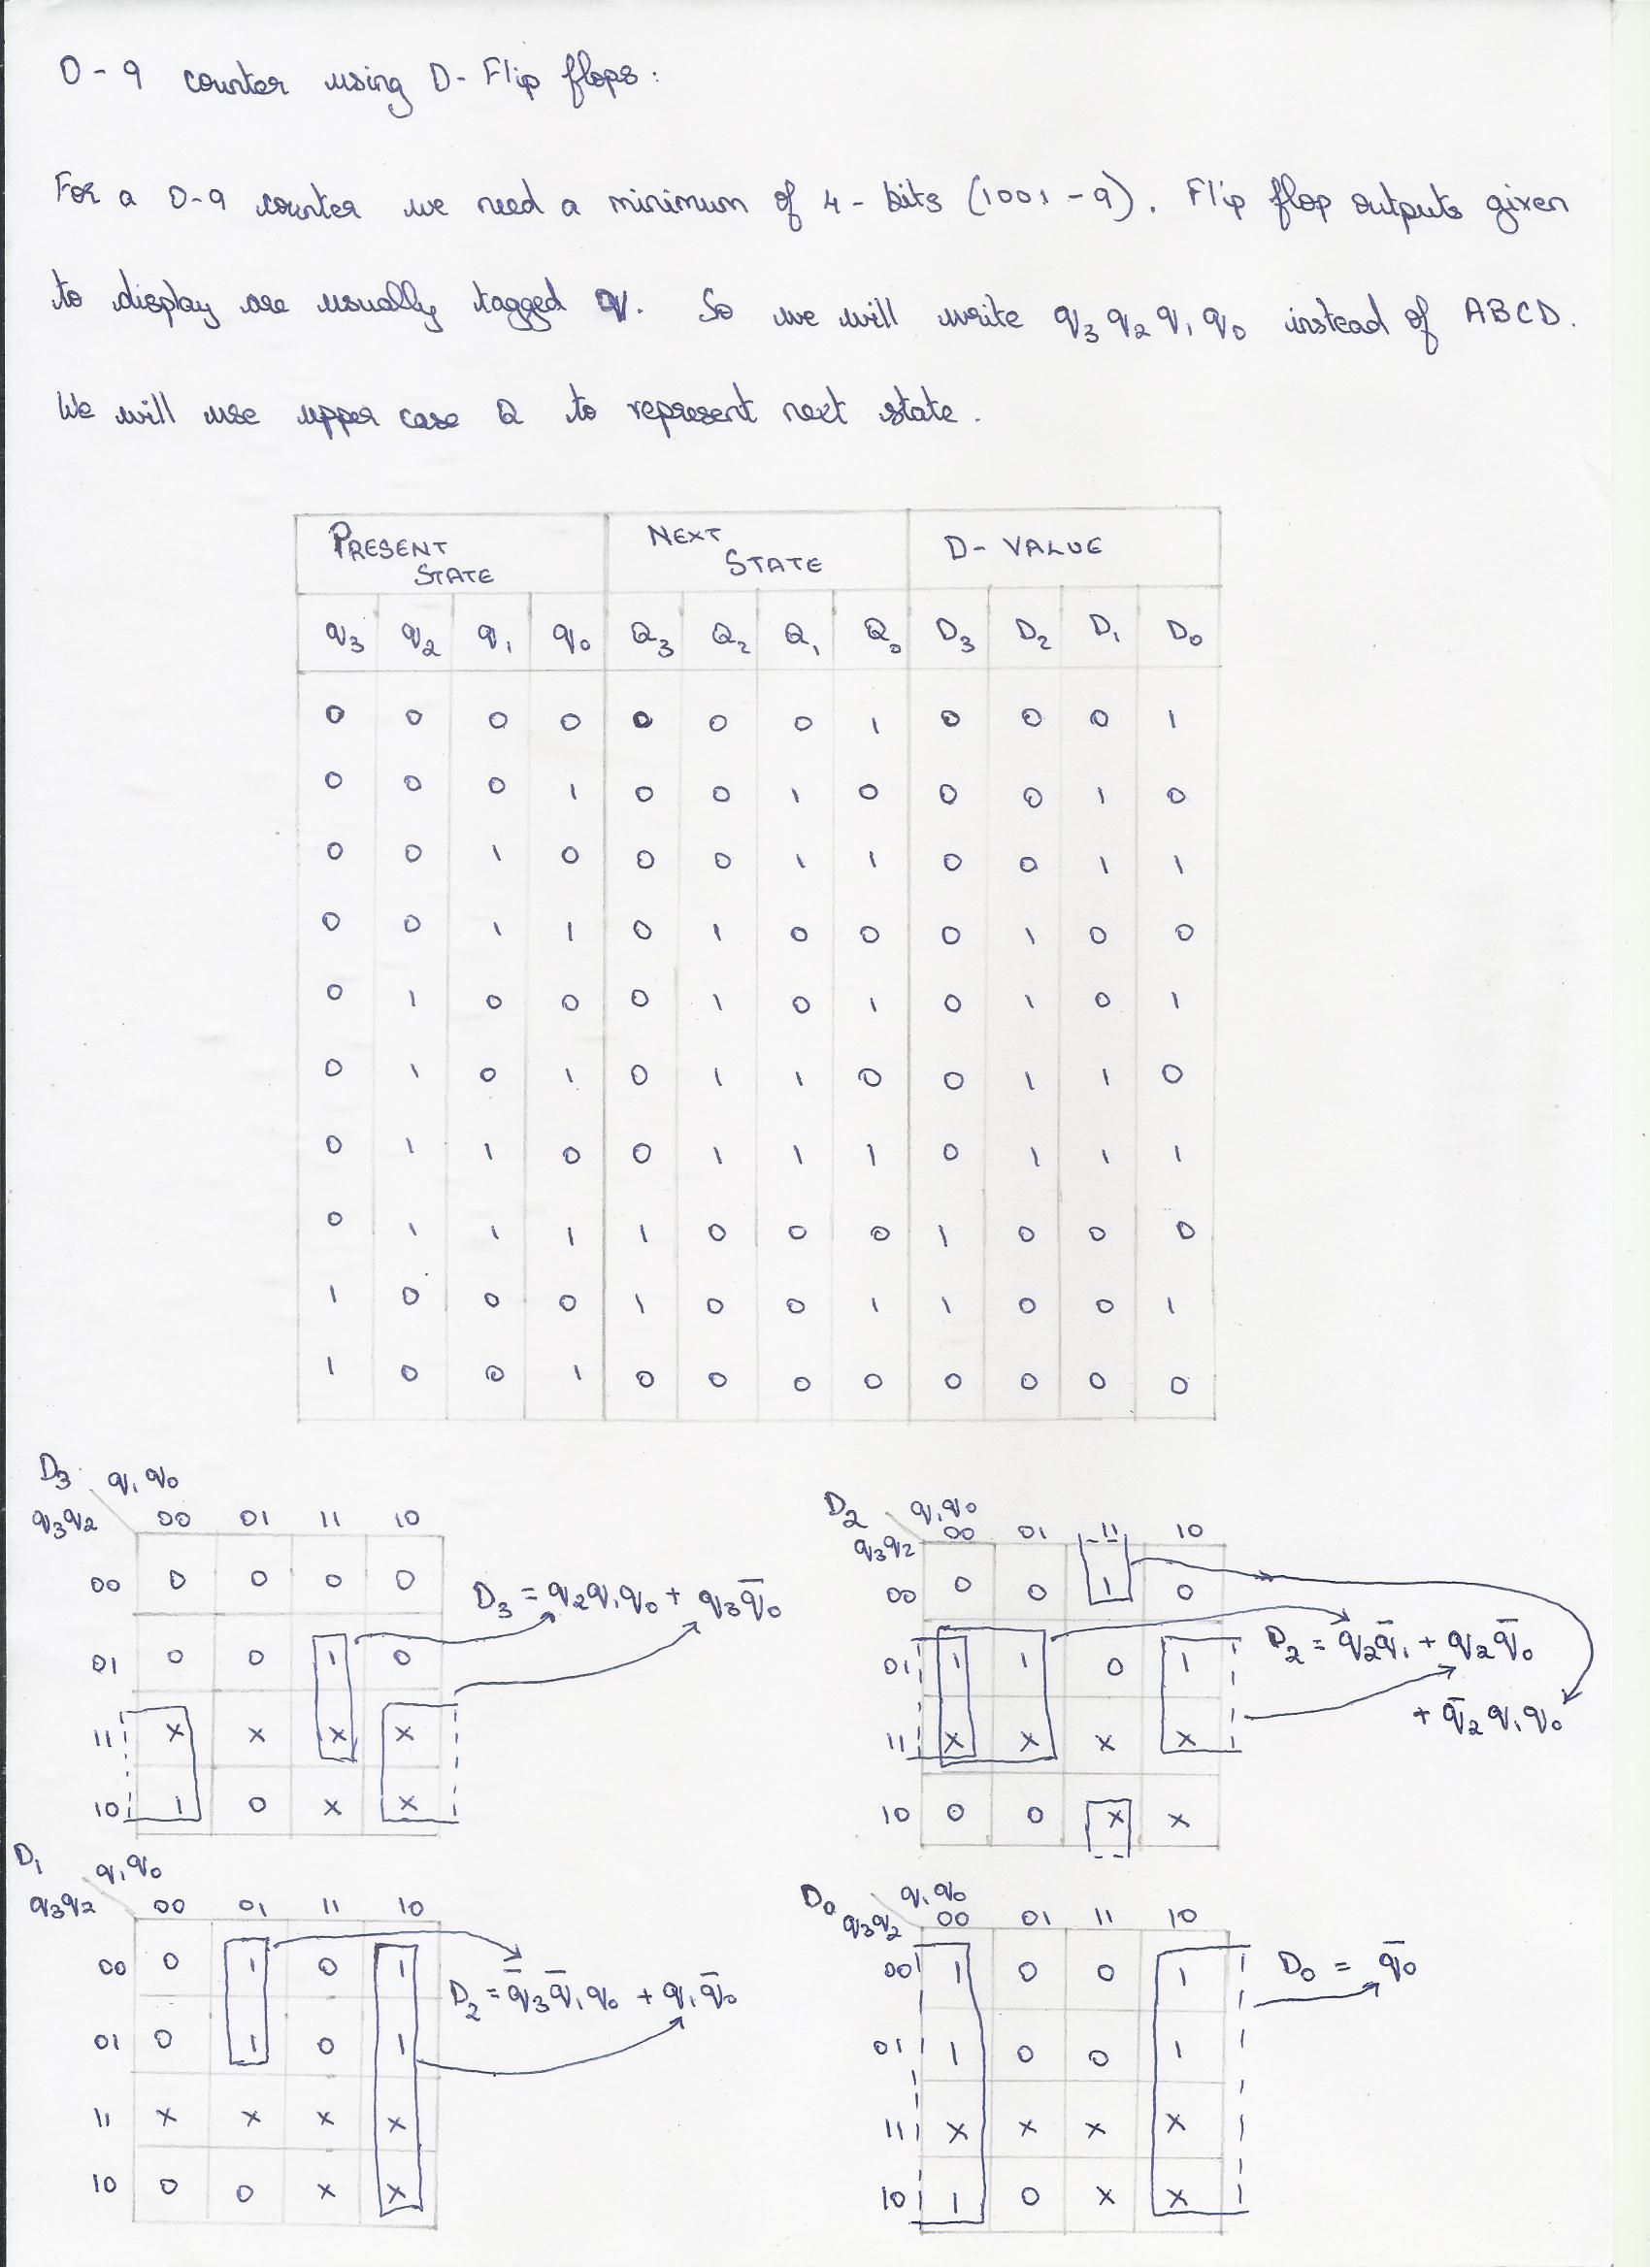 0-9 counter using D-Flip flops:
For a 0-9 counter we need a minimum of 4-bits (1001-9). Flip flop outputs given
to display are usually tagged q. So we will write q₃ q₂ q₁ q₀ instead of ABCD.
We will use upper case Q to represent next state.
PRESENT STATE NEXT STATE D-VALUE
q₃ q₂ q₁ q₀ Q₃ Q₂ Q₁ Q₀ D₃ D₂ D₁ D₀
0 0 0 0 0 0 0 1 0 0 0 1
0 0 0 1 0 0 1 0 0 0 1 0
0 0 1 0 0 0 1 1 0 0 1 1
0 0 1 1 0 1 0 0 0 1 0 0
0 1 0 0 0 1 0 1 0 1 0 1
0 1 0 1 0 1 1 0 0 1 1 0
0 1 1 0 0 1 1 1 0 1 1 1
0 1 1 1 1 0 0 0 1 0 0 0
1 0 0 0 1 0 0 1 1 0 0 1
1 0 0 1 0 0 0 0 0 0 0 0
D₃ q₁q₀
q₃q₂ 00 01 11 10
00 0 0 0 0
01 0 0 1 0
11 x x x x
10 1 0 x x
D₃ = q₂q₁q₀ + q₃q̅₀
D₂ q₁q₀
q₃q₂ 00 01 11 10
00 0 0 1 0
01 1 1 0 1
11 x x x x
10 0 0 x x
D₂ = q₂q̅₁ + q₂q̅₀
+ q̅₂q₁q₀
D₁ q₁q₀
q₃q₂ 00 01 11 10
00 0 1 0 1
01 0 1 0 1
11 x x x x
10 0 0 x x
D₂ = q̅₃q̅₁q₀ + q₁q̅₀
D₀ q₁q₀
q₃q₂ 00 01 11 10
00 1 0 0 1
01 1 0 0 1
11 x x x x
10 1 0 x x
D₀ = q̅₀